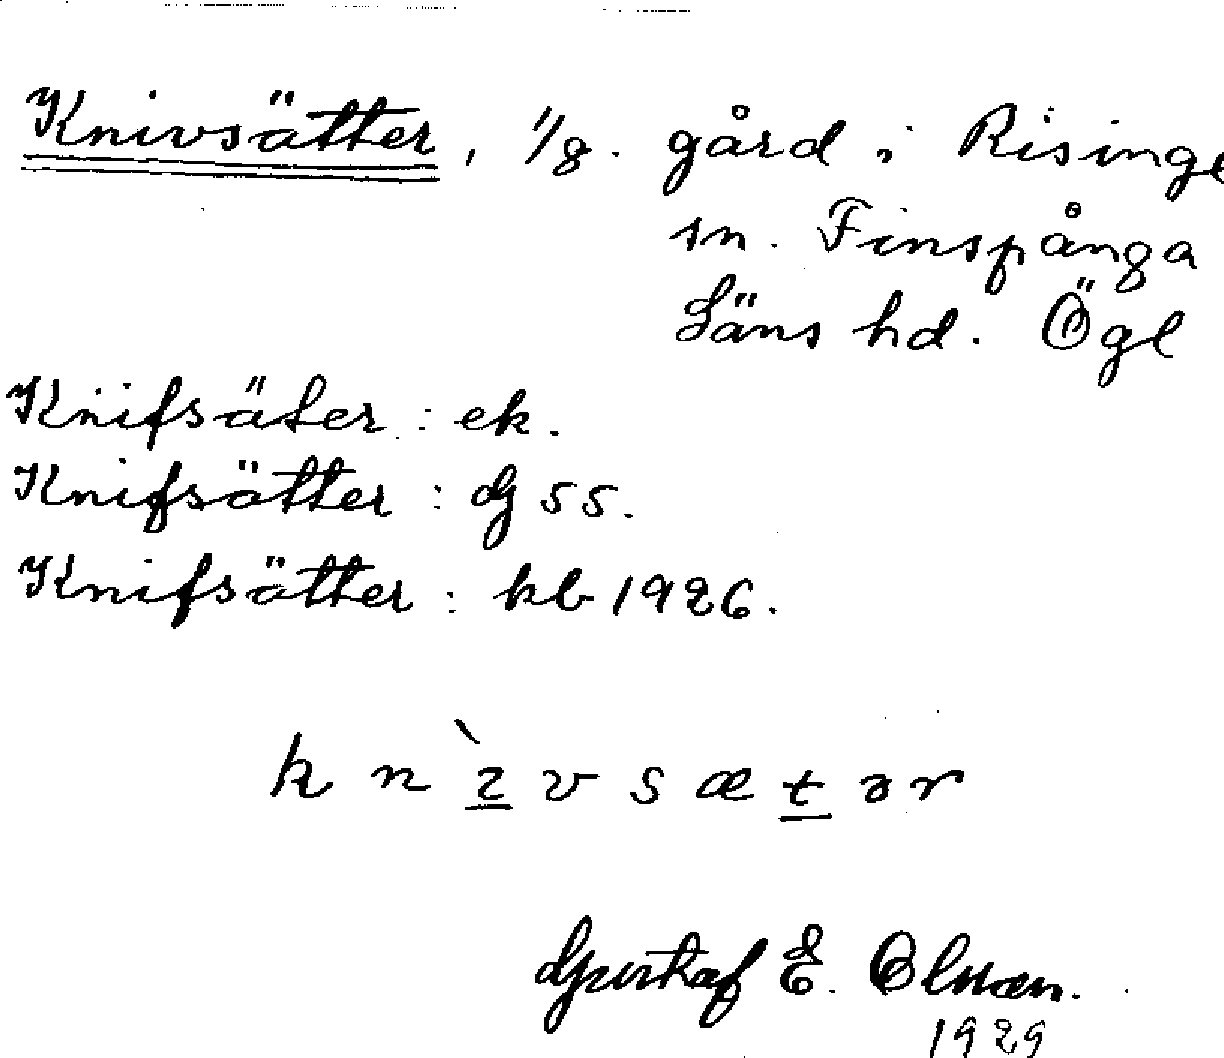 Knivsätter, 1/8. gård i Risinge
sn. Finspånga
Läns hd. Ögl
Knifsäter: ek.
Knifsätter: dg 55.
Knifsätter: kb 1926.
k n ì v s æ t ə r
Gustaf E. Olsson.
1929